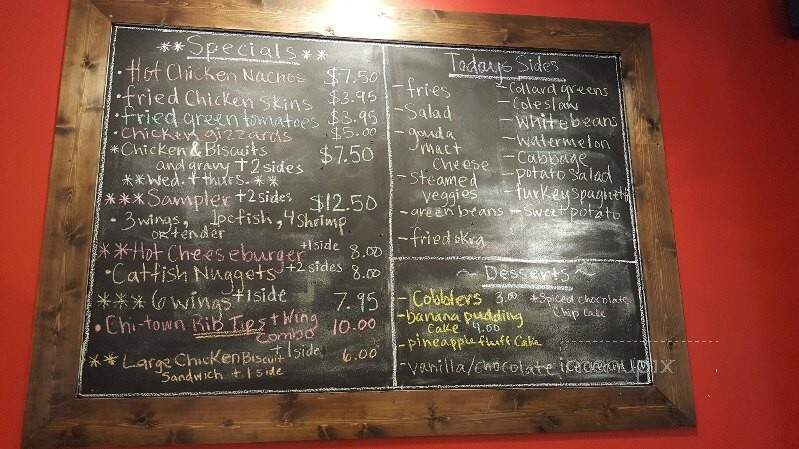 **Specials**
• Hot Chicken Nachos $7.50
• fried Chicken skins $3.95
• fried green tomatoes $3.95
• Chicken gizzards $5.00
* Chicken & Biscuits $7.50
and gravy + 2 sides
** Wed. + thurs. **
*** Sampler + 2 sides $12.50
• 3 wings, 1pc fish, 4 Shrimp
or tender
** Hot Cheeseburger + 1 side 8.00
• Catfish Nuggets + 2 sides 8.00
*** 6 wings + 1 side 7.95
• Chi-town Rib Tips + Wing 10.00
combo
** Large Chicken Biscuit 1 side 6.00
Sandwich + 1 side
Todays Sides
- fries
- Salad
- gouda
mact
Cheese
- Steamed
veggies
- green beans
- fried okra
- Collard greens
- Coleslaw
- white beans
- watermelon
- Cabbage
- potato salad
- turkey spaghetti
- Sweet potato
~ Desserts ~
- Cobblers 3.00
- banana pudding
cake 4.00
- pineapple fluff Cake
+ Spiced chocolate
Chip Cake
- vanilla/chocolate icecream